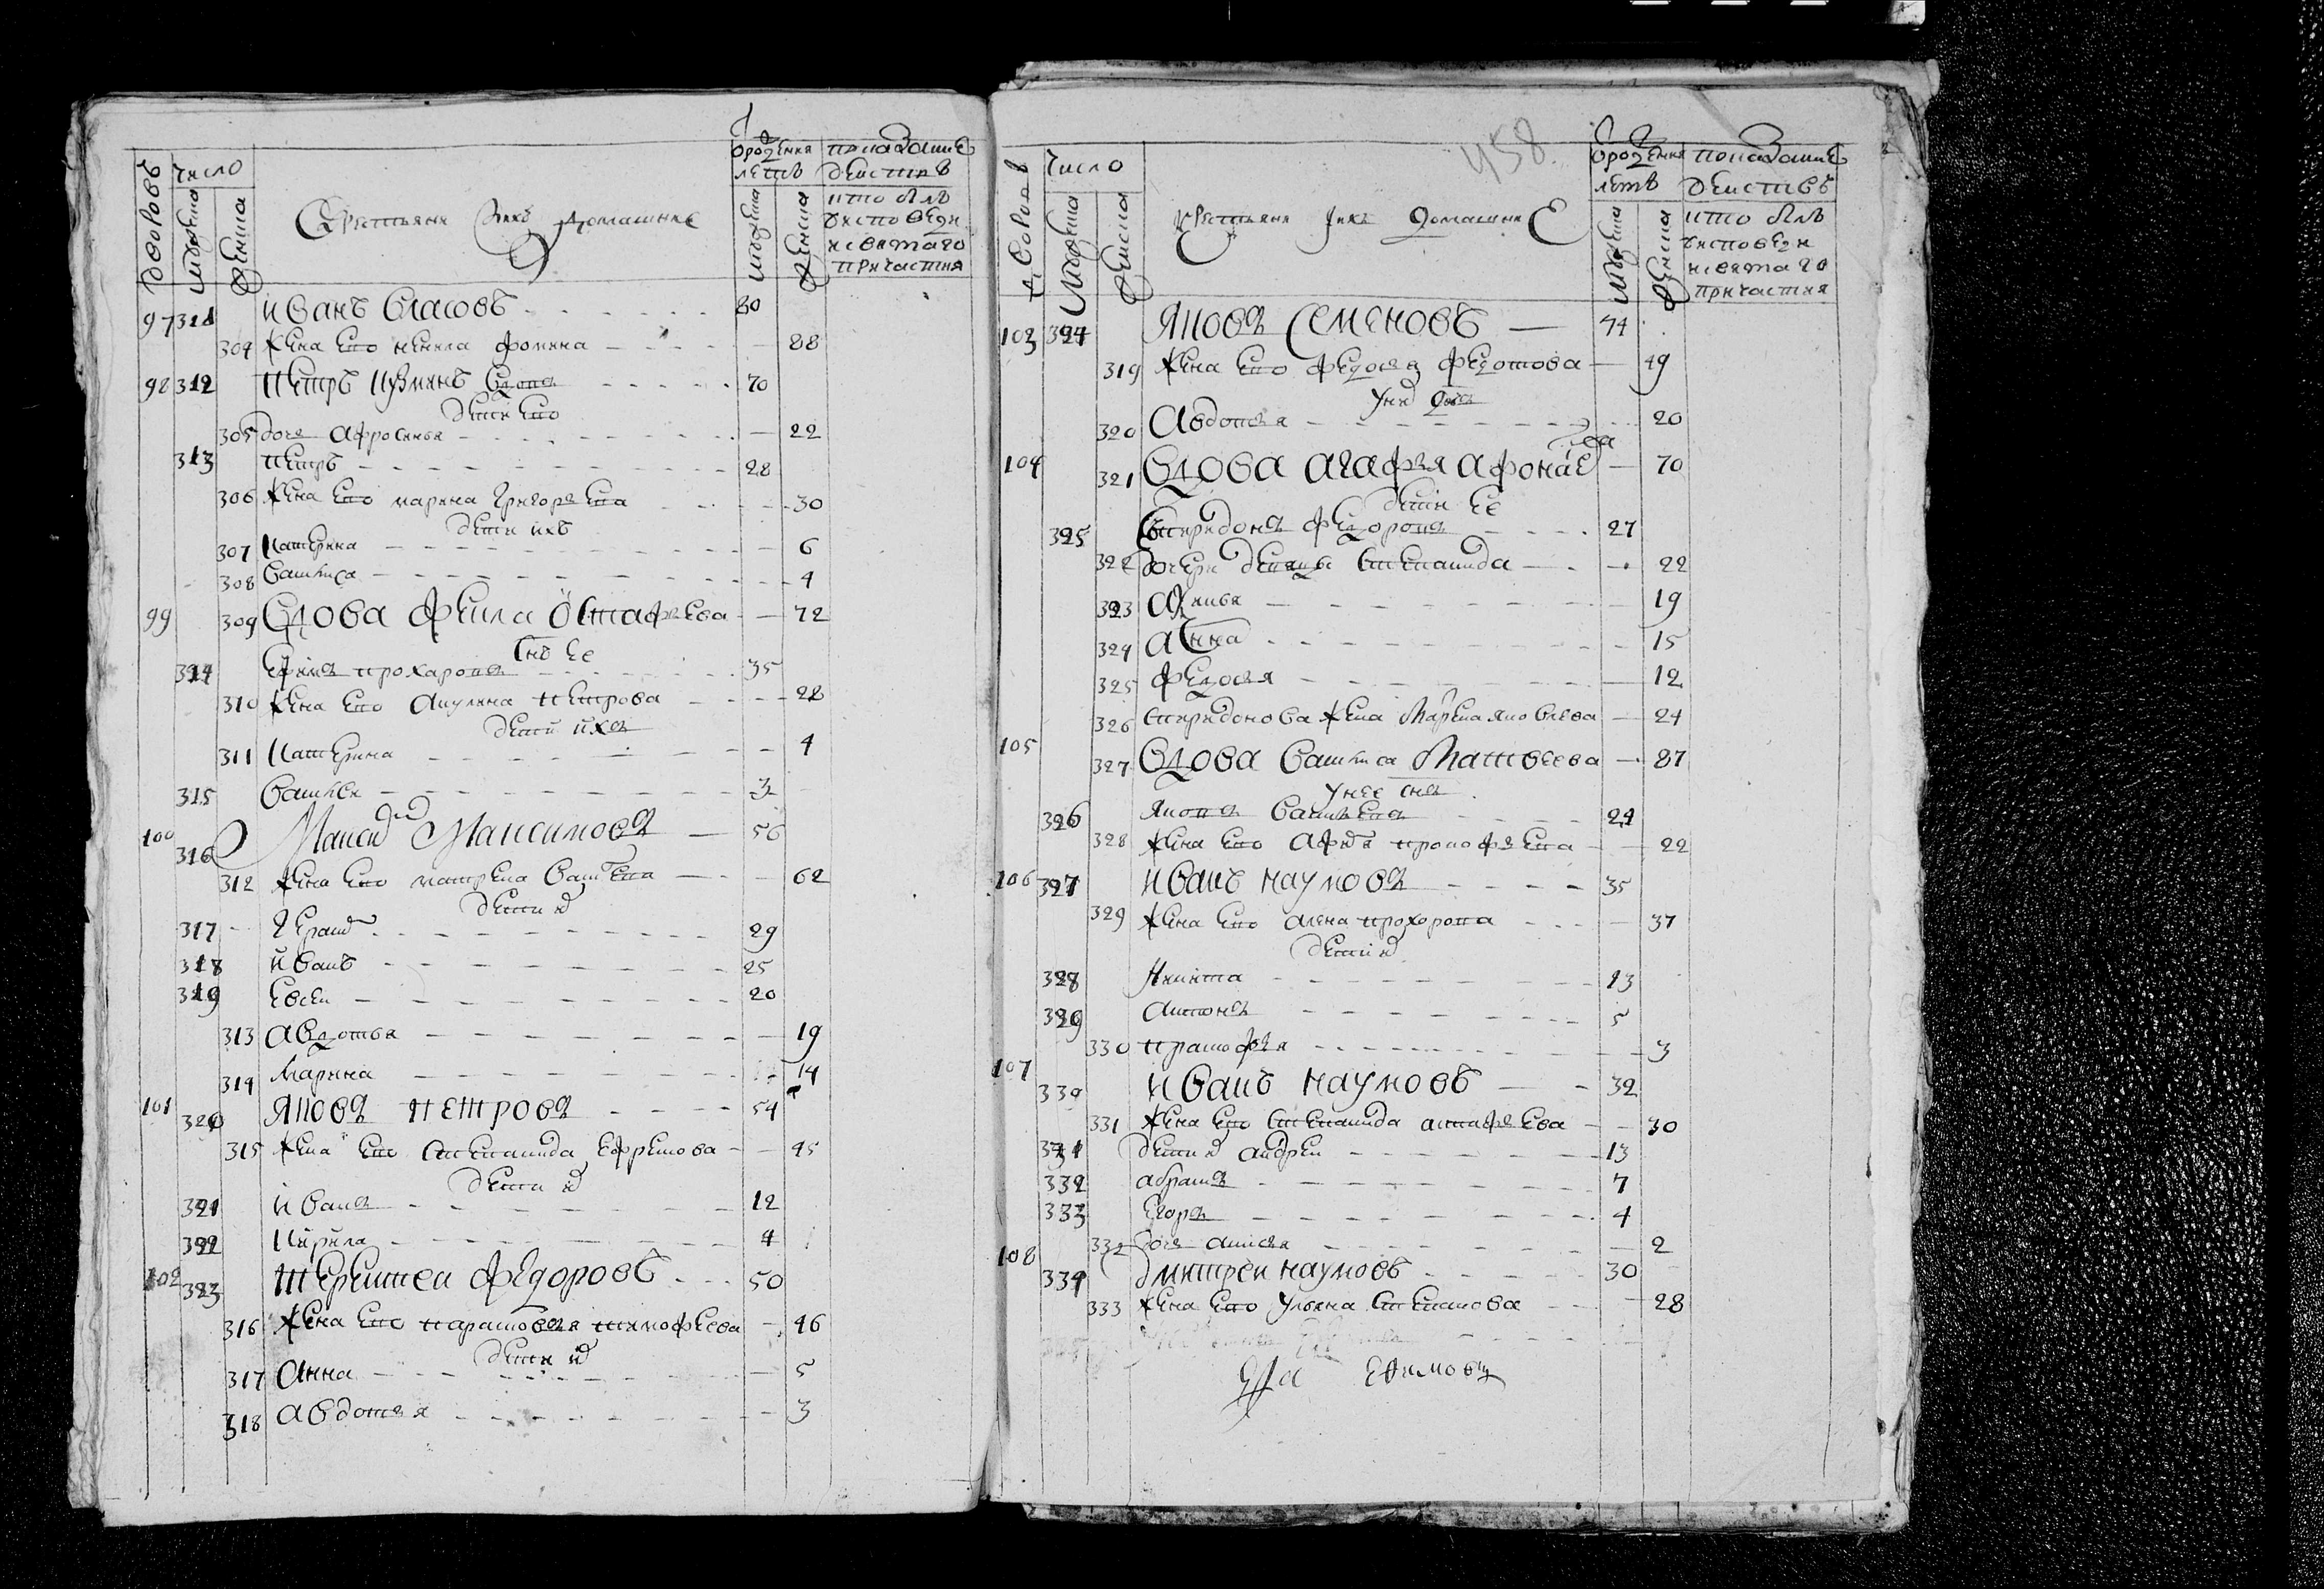 дворовъ число мужеска женска Крестьяне и ихъ домашние
от рождения летъ мужеска женска показание действъ кто былъ
у исповеди и святаго причастия
97 311 Иванъ Власовъ 80
304 жена его Ненила Фомина 88
98 312 Петръ Кузминъ вдовъ 70
дети его
305 дочь Афросинья 22
313 Петръ 28
306 жена его Марина Григорьева 30
дети ихъ
307 Катерина 6
308 Василиса 4
99 309 Вдова Фекла Остафьева 72
снъ ее
314 Ефимъ Прохаровъ 35
310 жена его Акулина Петрова 28
дети ихъ
311 Катерина 4
315 Василей 3
100 316 Максимъ Максимовъ 56
312 жена его Матрена Васильева 62
дети их
317 Герасим 29
318 Иванъ 25
319 Евсей 20
313 Авдотья 19
314 Марина 14
101 320 Яковъ Петровъ 54
315 жена его Степанида Ефремова 45
дети их
321 Иванъ 12
322 Кирила 4
102 323 Терентей Федоровъ 50
316 жена его Парасковья Тимофеева 46
дети их
317 Анна 5
318 Авдотья 3
458
дворовъ число мужеска женска Крестьяне и ихъ домашние
от рождения летъ мужеска женска показание действъ кто былъ
у исповеди и святаго причастия
103 324 Яковъ Семеновъ 44
319 жена его Федосья Федотова 49
у них дочь
320 Авдотья 20
104 321 Вдова Агафья Афонасьева 70
дети ее
325 Спиридонъ Федоровъ 27
322 дочери девицы Степанида 22
323 Акилина 19
324 Анна 15
325 Федосья 12
326 Спиридонова жена Марена Яковлева 24
105 327 Вдова Василиса Матвеева 87
у нее снъ
326 Яковъ Васильевъ 24
328 жена его Афимья Прокофьева 22
106 327 Иванъ Наумовъ 35
329 жена его Алена Прохорова 37
дети их
328 Никита 13
329 Антонъ 5
330 Прасковья 3
107 330 Иванъ Наумовъ 32
331 жена его Степанида Астафьева 30
331 дети их Андрей 13
332 Абрамъ 7
333 Егоръ 4
332 дочь Анисья 2
108 334 Дмитрей Наумовъ 30
333 жена его Ульяна Степанова 28